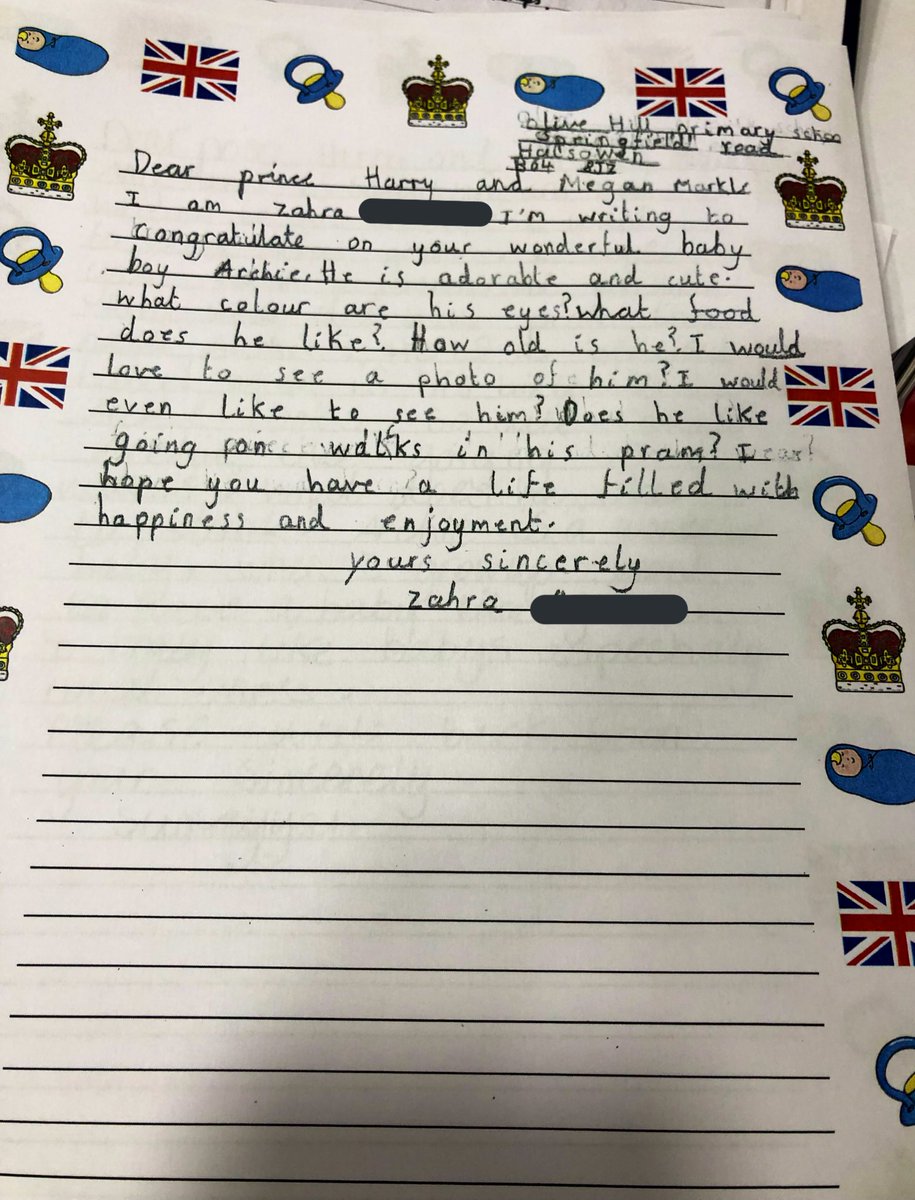 Olive Hill primary school
Springfield road
Halsowen
B64
Dear prince Harry and Megan Markle
I am Zahra I'm writing to
congratulate on your wonderful baby
boy Archie. He is adorable and cute.
what colour are his eyes? What food
does he like? How old is he? I would
love to see a photo of him? I would
even like to see him? Does he like
going on walks in his pram? I
hope you have a life filled with
happiness and enjoyment.
yours sincerely
Zahra